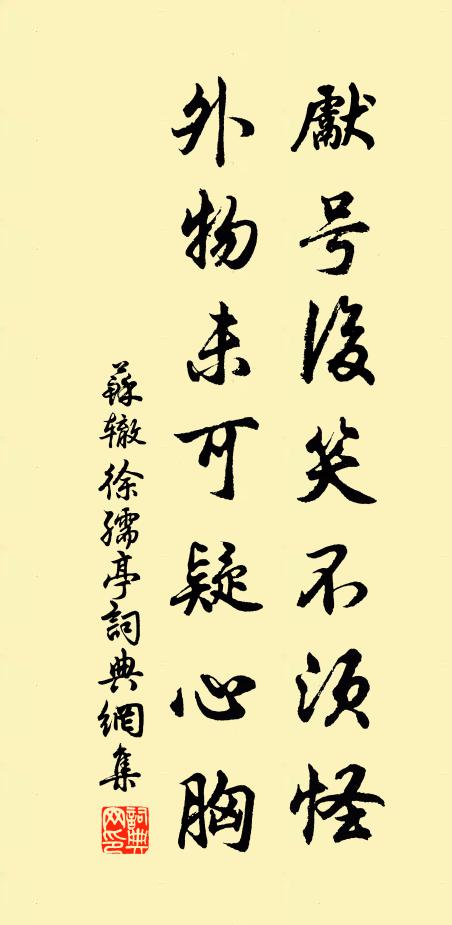 獻号後笑不须怪
外物未可疑心胸
蘇辙徐孺亭詞典網集
詞典网印